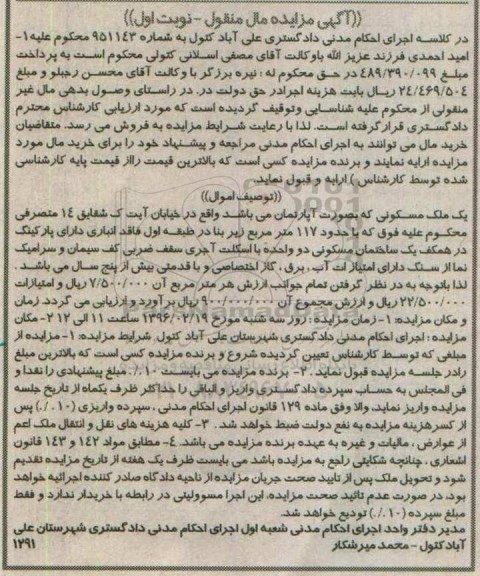 ((آگهی مزایده مال منقول - نوبت اول))
در کلاسه اجرای احکام مدنی دادگستری علی آباد کتول به شماره ۹۵۱۱۴۳ محکوم علیه۱-
امید احمدی فرزند عزیز الله باوکالت آقای مصفی اسلانی کتولی محکوم است به پرداخت
مبلغ ۴۸۹/۳۹۰/۰۹۹ در حق محکوم له : نیره برزگر با وکالت آقای محسن رجبلو و مبلغ
۲۴/۴۶۹/۵۰۴ ریال بابت هزینه اجرادر حق دولت در. در راستای وصول بدهی مال غیر
منقولی از محکوم علیه شناسایی وتوقیف گردیده است که مورد ارزیابی کارشناس محترم
دادگستری قرارگرفته است. لذا با رعایت شرایط مزایده به فروش می رسد. متقاضیان
خرید مال می توانند به اجرای احکام مدنی مراجعه و پیشنهاد خود را برای خرید مال مورد
مزایده ارایه نمایند و برنده مزایده کسی است که بالاترین قیمت رااز قیمت پایه کارشناسی
شده توسط کارشناس ) ارایه و قبول نماید.
((توصیف اموال))
یک ملک مسکونی که بصورت آپارتمان می باشد واقع در خیابان آیت ک شقایق ۱۴ متصرفی
محکوم علیه فوق که با حدود ۱۱۷ متر مربع زیر بنا در طبقه اول فاقد انباری دارای پارکینگ
در همکف یک ساختمان مسکونی دو واحده با اسکلت آجری سقف ضربی کف سیمان و سرامیک
نما از سنگ دارای امتیازات آب، برق ، گاز اختصاصی و با قدمتی بیش از پنج سال می باشد .
لذا باتوجه به در نظر گرفتن تمام جوانب ارزش هر متر مربع آن ۷/۵۰۰/۰۰۰ ریال و امتیازات
۲۲/۵۰۰/۰۰۰ ریال و ارزش مجموع آن ۹۰۰/۰۰۰/۰۰۰ ریال بر آورد و ارزیابی می گردد زمان
و مکان مزایده: ۱- زمان مزایده : روز سه شنبه مورخ ۱۳۹۶/۰۲/۱۹ ساعت ۱۱ الی ۱۲ ۲- مکان
مزایده : اجرای احکام مدنی دادگستری شهرستان علی آباد کتول. شرایط مزایده: ۱- مزایده از
مبلغی که توسط کارشناس تعیین گردیده شروع و برنده مزایده کسی است که بالاترین مبلغ
رادر جلسه مزایده قبول نماید . ۲- برنده مزایده می بایست ۱۰٪ مبلغ پیشنهادی را نقدا و
فی المجلس به حساب سپرده دادگستری واریز و الباقی را حداکثر ظرف یکماه از تاریخ جلسه
مزایده واریز نماید، والا وفق ماده ۱۲۹ قانون اجرای احکام مدنی ، سپرده واریزی (۱۰٪) پس
از کسرهزینه مزایده به نفع دولت ضبط خواهد شد . ۳- کلیه هزینه های نقل و انتقال ملک اعم
از عوارض ، مالیات و غیره به عهده برنده مزایده می باشد. ۴- مطابق مواد ۱۴۲ و ۱۴۳ قانون
اشعاری ، چنانچه شکایتی راجع به مزایده باشد می بایست ظرف یک هفته از تاریخ مزایده تقدیم
شود و تحویل ملک پس از تایید صحت جریان مزایده از ناحیه دادگاه صادر کننده اجرائیه خواهد
بود، در صورت عدم تائید صحت مزایده، این اجرا مسوولیتی در رابطه با خریدار ندارد و فقط
مبلغ سپرده (۱۰٪) تودیع خواهد شد.
مدیر دفتر واحد اجرای احکام مدنی شعبه اول اجرای احکام مدنی دادگستری شهرستان علی
آبادکتول - محمد میرشکار ۱۲۹۱